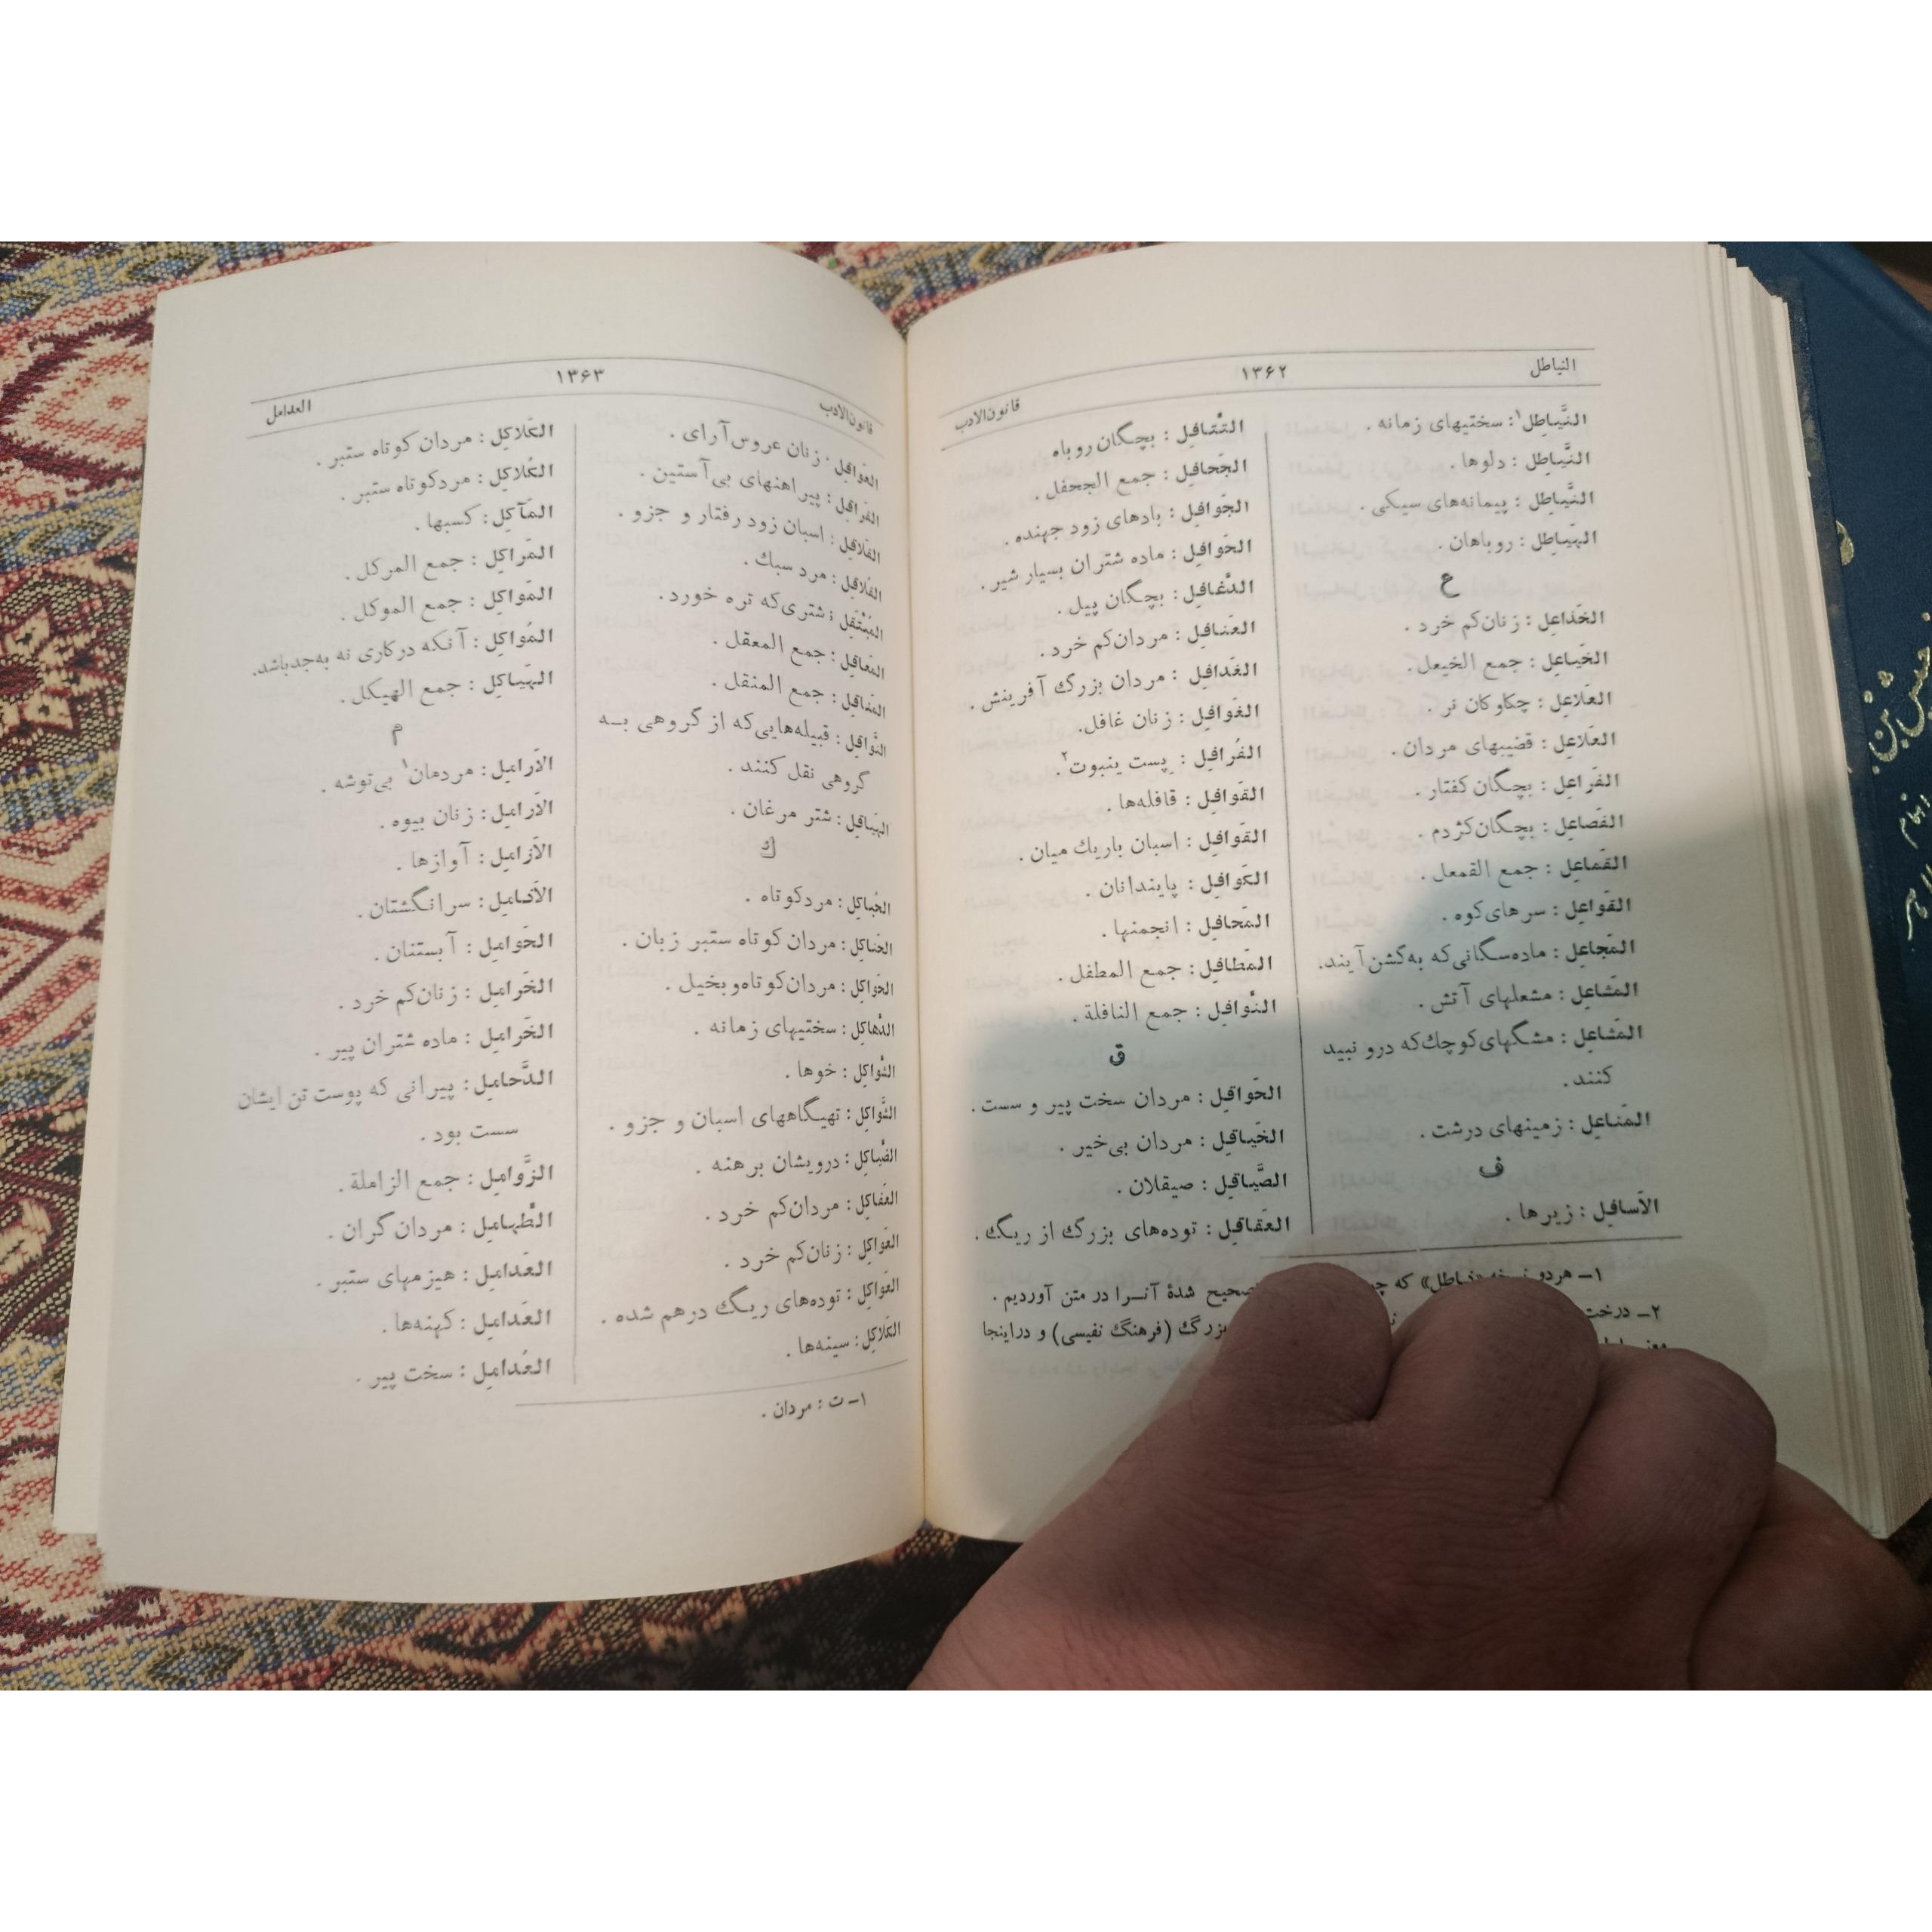 النیاطل
۱۳۶۲
قانون‌الادب
النَّیاطِل۱: سختیهای زمانه .
النَّیاطِل : دلوها .
النَّیاطِل : پیمانه‌های سیکی .
الهَیاطِل : روباهان .
ع
الخَذاعِل : زنان‌کم خرد .
الخَیاعِل : جمع الخیعل .
العَلاعِل : چکاوکان نر .
العَلاعِل : قضیبهای مردان .
الفَراعِل : بچگان کفتار .
الفَصاعِل : بچگان‌کژدم .
القَماعِل : جمع القمعل .
القَواعِل : سرهای‌کوه .
المَجاعِل : ماده‌سگانی‌که به‌گشن‌آیند.
المَشاعِل : مشعلهای آتش .
المَشاعِل : مشگهای‌کوچك‌که درو نبید
کنند .
المَناعِل : زمینهای درشت .
ف
الاَسافِل : زیرها .
التَتافِل : بچگان روباه
الجَحافِل : جمع الجحفل .
الجَوافِل : بادهای زود جهنده .
الحَوافِل : ماده شتران بسیار شیر .
الدَّغافِل : بچگان پیل .
العَنافِل : مردان‌کم خرد .
الغَدافِل : مردان بزرگ آفرینش .
الغَوافِل : زنان غافل.
الفُرافِل : پِست ینبوت۲.
القَوافِل : قافله‌ها .
القَوافِل : اسبان باریك میان .
الکَوافِل : پایندانان .
المَحافِل : انجمنها .
المَطافِل : جمع المطفل .
النَّوافِل : جمع النافلة .
ق
الحَواقِل : مردان سخت پیر و سست .
الخَیاقِل : مردان بی‌خیر .
الصَّیاقِل : صیقلان .
العَقاقِل : توده‌های بزرگ از ریگ .
۱ــ هردو نسخه «نیاطل» که
صحیح شدۀ آنــرا در متن آوردیم .
۲ــ درخت
بزرگ (فرهنگ نفیسی) و دراینجا
قانون‌الادب
۱۳۶۳
العدامل
العَواقِل : زنان عروس‌آرای .
الفَراقِل : پیراهنهای بی‌آستین .
القَلاقِل : اسبان زود رفتار و جزو .
القُلاقِل : مرد سبك .
المُبْتَقِل : شتری‌که تره خورد .
المَعاقِل : جمع المعقل .
المَناقِل : جمع المنقل .
النَّواقِل : قبیله‌هایی‌که از گروهی بــه
گروهی نقل کنند .
الهَیاقِل : شتر مرغان .
ك
الحُباکِل : مردکوتاه .
الحَناکِل : مردان کوتاه ستبر زبان .
الحَواکِل : مردان‌کوتاه‌وبخیل .
الدَّهاکِل : سختیهای زمانه .
الشَّواکِل : خوها .
الشَّواکِل : تهیگاههای اسبان و جزو .
الضَّیاکِل : درویشان برهنه .
العَفاکِل : مردان‌کم خرد .
العَواکِل : زنان‌کم خرد .
العَواکِل : توده‌های ریگ درهم شده .
الکَلاکِل : سینه‌ها .
الکَلاکِل : مردان کوتاه ستبر .
الکُلاکِل : مردکوتاه ستبر .
المَآکِل : کسبها .
المَراکِل : جمع المرکل .
المَواکِل : جمع الموکل .
المُواکِل : آنکه درکاری نه به‌جدباشد.
الهَیاکِل : جمع الهیکل .
م
الاَرامِل : مردمان۱ بی‌توشه .
الاَرامِل : زنان بیوه .
الاَزامِل : آوازها .
الاَنامِل : سرانگشتان .
الحَوامِل : آبستنان .
الخَرامِل : زنان‌کم خرد .
الخَرامِل : ماده شتران پیر .
الدَّحامِل : پیرانی که پوست تن ایشان
سست بود .
الزَّوامِل : جمع الزاملة .
الطَّهامِل : مردان گران .
العَدامِل : هیزمهای ستبر .
العَدامِل : کهنه‌ها .
العُدامِل : سخت پیر .
۱ــ ت : مردان .